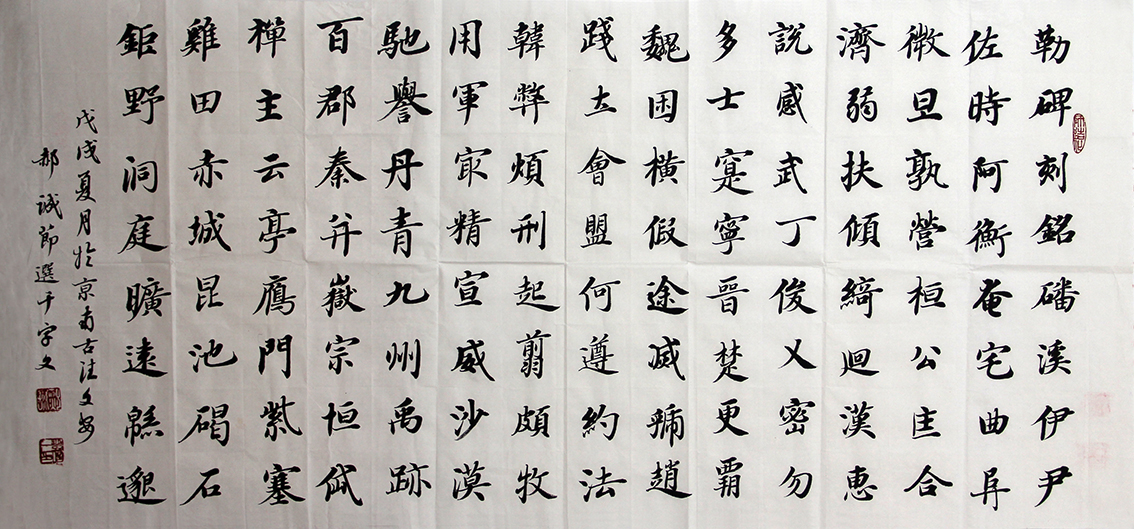 勒碑刻銘磻溪伊尹
佐時阿衡奄宅曲阜
微旦孰營桓公匡合
濟弱扶傾綺迴漢惠
說感武丁俊乂密勿
多士寔寧晉楚更霸
魏困橫假途滅虢趙
踐土會盟何遵約法
韓弊煩刑起翦頗牧
用軍㝡精宣威沙漠
馳譽丹青九州禹跡
百郡秦并嶽宗恒岱
禪主云亭鴈門紫塞
雞田赤城昆池碣石
鉅野洞庭曠遠緜邈
戊戌夏月於京南古洼文安
郝誠節選千字文